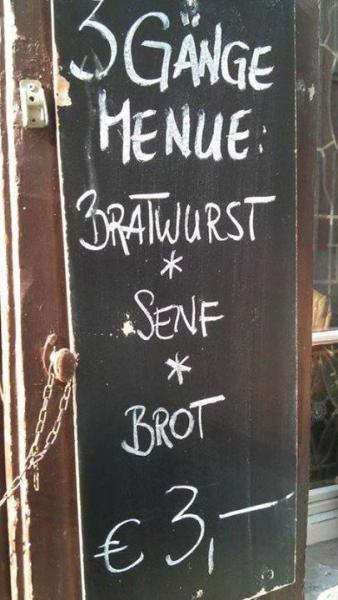 3 GÄNGE
MENUE:
BRATWURST
*
SENF
*
BROT
€ 3,—